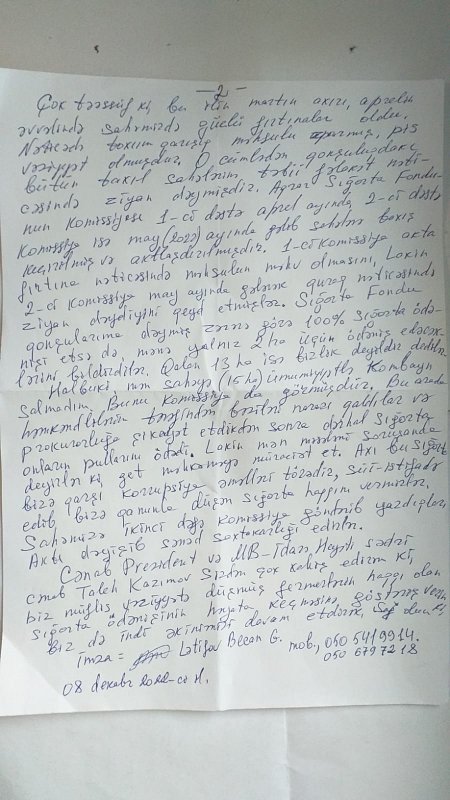 — 2 —
Çox təəssüf ki, bu ilin martın axırı, aprelin
əvvəlində sahəmizdə güclü fırtınalar oldu.
Nəticədə toxum qarışıq məhsulu aparmış, pis
vəziyyət olmuşdur. O cümlədən qonşuluqdakı
bütün taxıl sahələrinə təbii fəlakət nəti-
cəsində ziyan dəymişdir. Aqrar Sığorta Fondu-
nun Komissiyası 1-ci dəfə aprel ayında, 2-ci dəfə
Komissiya isə may (2022) ayında gəlib sahələrə baxış
keçirilmiş və aktlaşdırılmışdır. 1-ci Komissiya aktda
fırtına nəticəsində məhsulun məhv olmasını, Lakin
2-ci Komissiya may ayında gələrək quraq nəticəsində
ziyan dəydiyini qeyd etmişlər. Sığorta Fondu
qonşularıma dəymiş zərərə görə 100% sığorta ödə-
nişi etsə də, mənə yalnız 2 ha üçün ödəniş edəcək-
lərini bildirdilər. Qalan 13 ha isə bizlik deyildir dedilər.
Halbuki mən sahəyə (15 ha) ümumiyyətlə Kombayn
salmadım. Bunu Komissiya da görmüşdür. Bu arada
həmkəndlilərim tərəfindən bəziləri narazı qaldılar və
Prokurorluğa şikayət etdikdən sonra dərhal Sığorta
onların pullarını ödədi. Lakin mən məsələni soruşanda
deyirlər ki, get məhkəməyə müraciət et. Axı bu Sığorta
bizə qarşı korrupsiya əməlləri törədir, sui-istifadə
edib bizə qanunla düşən sığorta haqqını vermirlər.
Sahəmizə ikinci dəfə komissiya göndərib yazdıqları
Aktı dəyişib sənəd saxtakarlığı edirlər.
Cənab Prezident və MB-İdarə Heyəti sədri
cənab Taleh Kazımov Sizdən çox xahiş edirəm ki,
biz müflis vəziyyətə düşmüş fermerlərin haqqı olan
sığorta ödənişinin həyata keçməsinə göstəriş verin
Biz də indi əkinimizi davam etdirək. Sağ olun
İmza = Lətifov Becan G. mob, 050 541 99 14.
050 679 72 18
08 dekabr 2022-ci il.